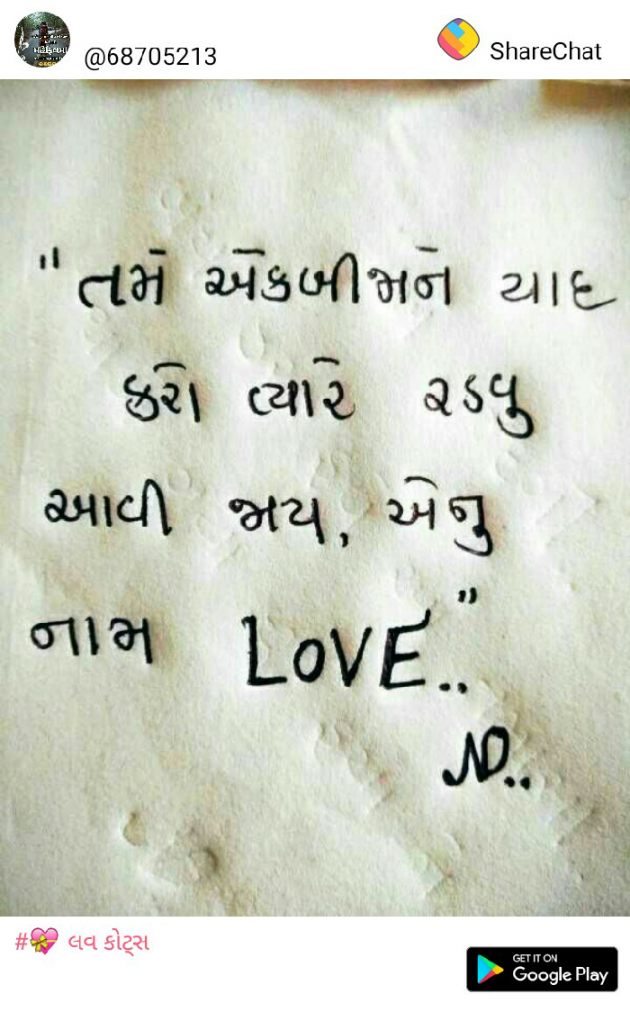 @68705213
ShareChat
"તમે એકબીજાને યાદ
કરો ત્યારે રડવુ
આવી જાય, એનુ
નામ LOVE.."
ND..
#💝 લવ કોટ્સ
GET IT ON
Google Play